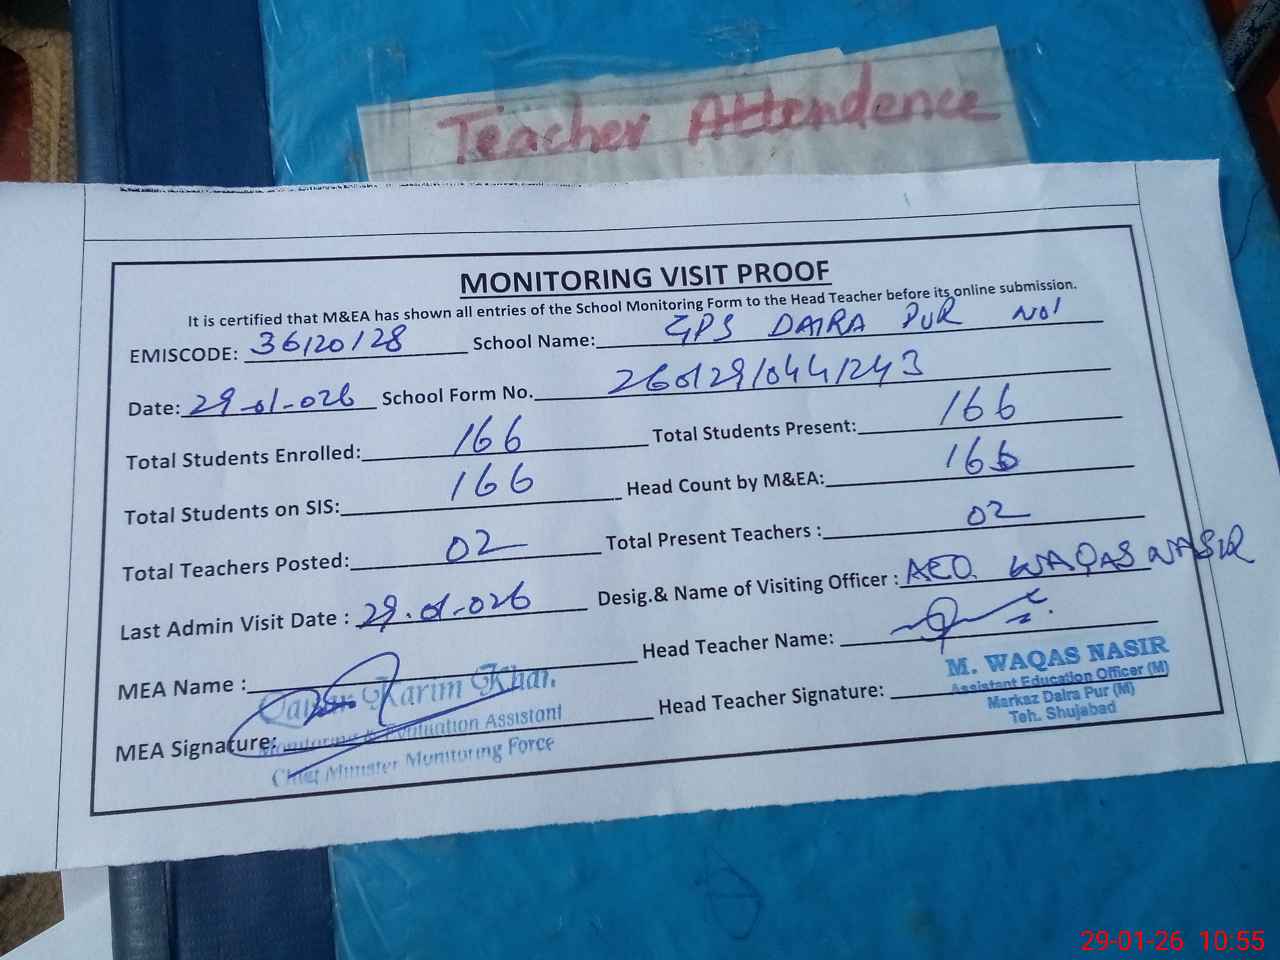 Teacher Attendence
MONITORING VISIT PROOF
It is certified that M&EA has shown all entries of the School Monitoring Form to the Head Teacher before its online submission.
EMISCODE: 36120128 School Name: GPS DAIRA PUR NO1
Date: 29-01-026 School Form No. 260129/044/243
Total Students Enrolled: 166 Total Students Present: 166
Total Students on SIS: 166 Head Count by M&EA: 166
Total Teachers Posted: 02 Total Present Teachers : 02
Last Admin Visit Date : 29-01-026 Desig.& Name of Visiting Officer : AEO. WAQAS NASIR
MEA Name : Head Teacher Name:
Karim Khan
MEA Signature: Head Teacher Signature:
Monitoring & Evaluation Assistant
Chief Minister Monitoring Force
M. WAQAS NASIR
Assistant Education Officer (M)
Markaz Daira Pur (M)
Teh. Shujabad
29-01-26 10:55